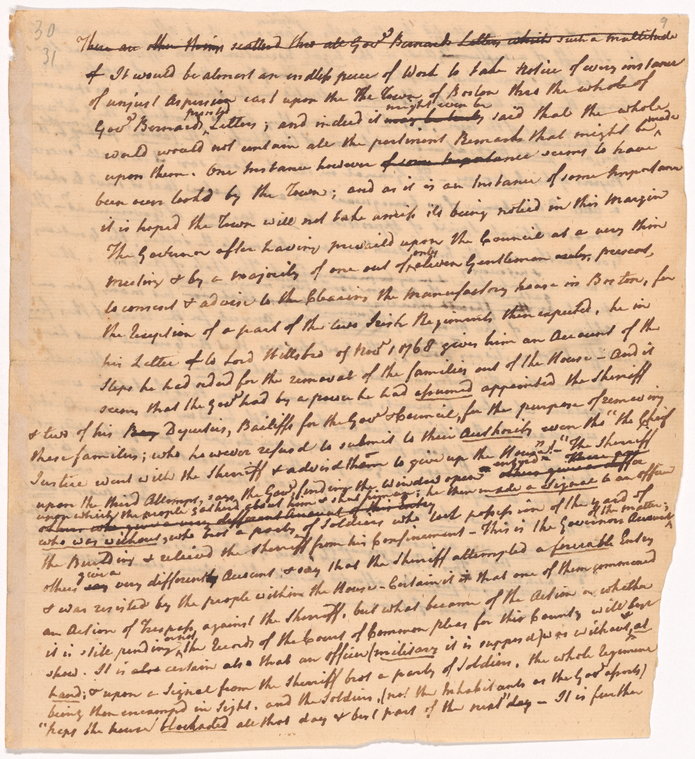 30
31
9
There are other things scatterd thro all Govr Bernards Letters which such a multitude
+ It would be almost an endless piece of Work to take notice of every instance
of unjust Aspersion cast upon the The Town of Boston thro the whole of
Govr Bernards Letters; and indeed it might even be said that the whole
would would not contain all the pertinent Remarks that might be made
upon them. One Instance however of some importance seems to have
been over lookd by the Town; and as it is an Instance of some Importance
it is hoped the Town will not take amiss its being noticd in this Margin
The Governor after having prevaild upon the Council at a very thin
meeting & by a majority of one out of only eleven Gentlemen present,
to consent & advise to the Clearing the Manufactory house in Boston, for
the Reception of a part of the two Irish Regiments then expected, he in
his Letter to Lord Hillsbro of Novr 1 1768 gives him an Account of the
steps he had orderd for the removal of the families out of the House - And it
seems that the Govr had by a power he had assumed appointed the Sheriff
& two of his Deputies, Bailiffs for the Govr & Council, for the purpose of removing
these families; who however refusd to submit to their Authority, even tho "the Chief
Justice went with the Sheriff & advisd them to give up the House"! - "The Sheriff
upon the third Attempt, says the Govr, finding the window open enterd
upon which the people gatherd about him & shut him up; he then made a signal to an officer
who was without, who brot a party of soldiers who took possession of the yard of
the Building & relievd the Sheriff from his Confinement - This is the Governors Account of the matter;
others give a very different Account, & say that the Sheriff attempted a forceable Entry
& was resisted by the people within the House - Certain it is that one of them commencd
an Action of Trespass against the Sheriff, but what became of the Action or whether
it is still pending or not, the Records of the Court of Common pleas for this County will best
shew. It is certain also that an officer (military it is supposed) was without, at
hand, & upon a signal from the Sheriff brot a party of Soldiers, the whole regiment
being then encamped in sight, and the Soldiers, (not the Inhabitants as the Govr asserts)
"keep the house blockaded all that day & best part of the next" day - It is further